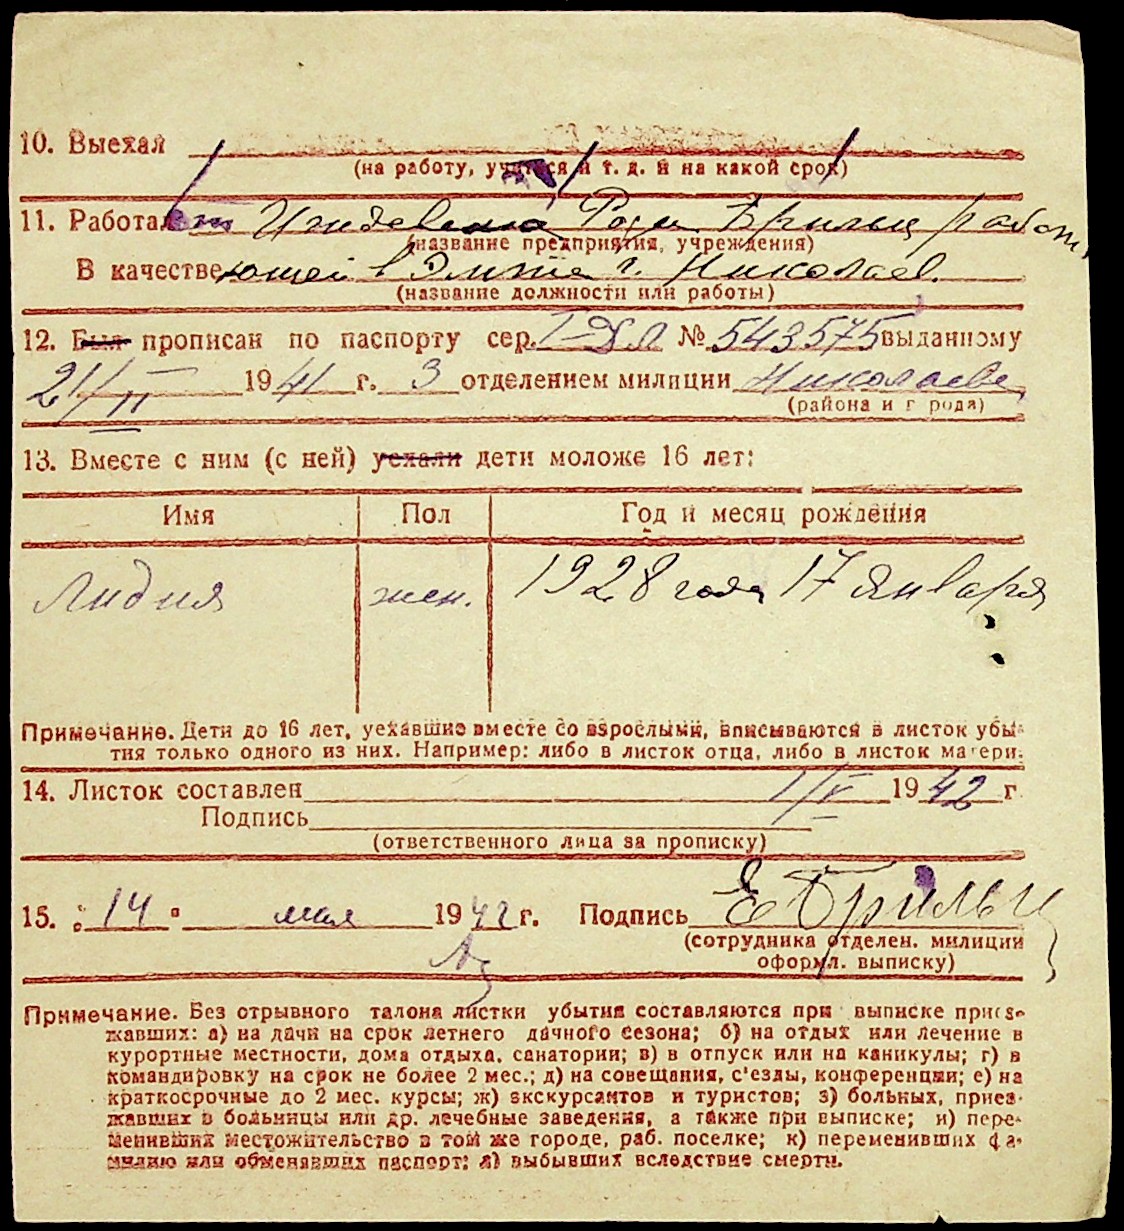 10. Выехал
(на работу, учиться и т. д. и на какой срок)
11. Работал Иждевенка Рози Брильц работ
(название предприятия, учреждения)
В качестве ющей в г. Николаев.
(название должности или работы)
12. Был прописан по паспорту сер. № 543575 выданному
21/II 1941 г. 3 отделением милиции Николаева
(района и г рода)
13. Вместе с ним (с ней) уехали дети моложе 16 лет:
Имя Пол Год и месяц рождения
Лидия жен. 1928 года 17 января
Примечание. Дети до 16 лет, уехавшие вместе со взрослыми, вписываются в листок убы-
тия только одного из них. Например: либо в листок отца, либо в листок матери.
14. Листок составлен 1/V 1942 г.
Подпись
(ответственного лица за прописку)
15. „14" мая 1942 г. Подпись Е Брильц
(сотрудника отделен. милиции
оформл. выписку)
Примечание. Без отрывного талона листки убытия составляются при выписке приез-
жавших: а) на дачи на срок летнего дачного сезона; б) на отдых или лечение в
курортные местности, дома отдыха, санатории; в) в отпуск или на каникулы; г) в
командировку на срок не более 2 мес.; д) на совещания, с'езды, конференции; е) на
краткосрочные до 2 мес. курсы; ж) экскурсантов и туристов; з) больных, приез-
жавших в больницы или др. лечебные заведения, а также при выписке; и) пере-
менивших местожительство в том же городе, раб. поселке; к) переменивших фа-
милию или обменявших паспорт; л) выбывших вследствие смерти.